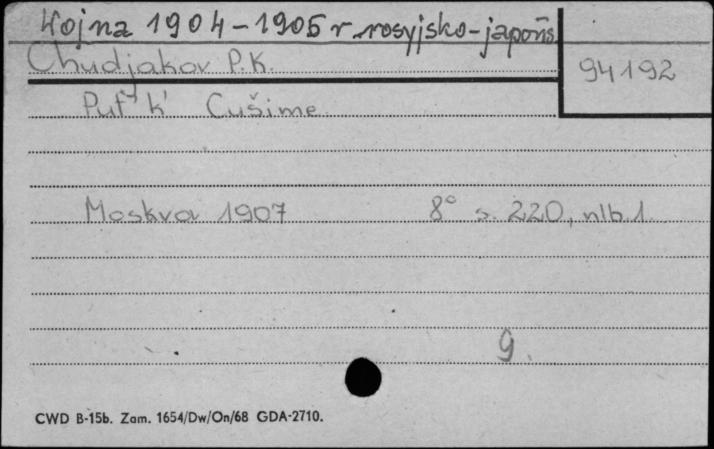 Wojna 1904-1905 r rosyjsko-japońs
Chudjakov P.K.
94192
Put' k' Cušime
Moskva 1907 8° s. 220, nlb. 1.
9.
CWD B-15b. Zam. 1654/Dw/On/68 GDA-2710.